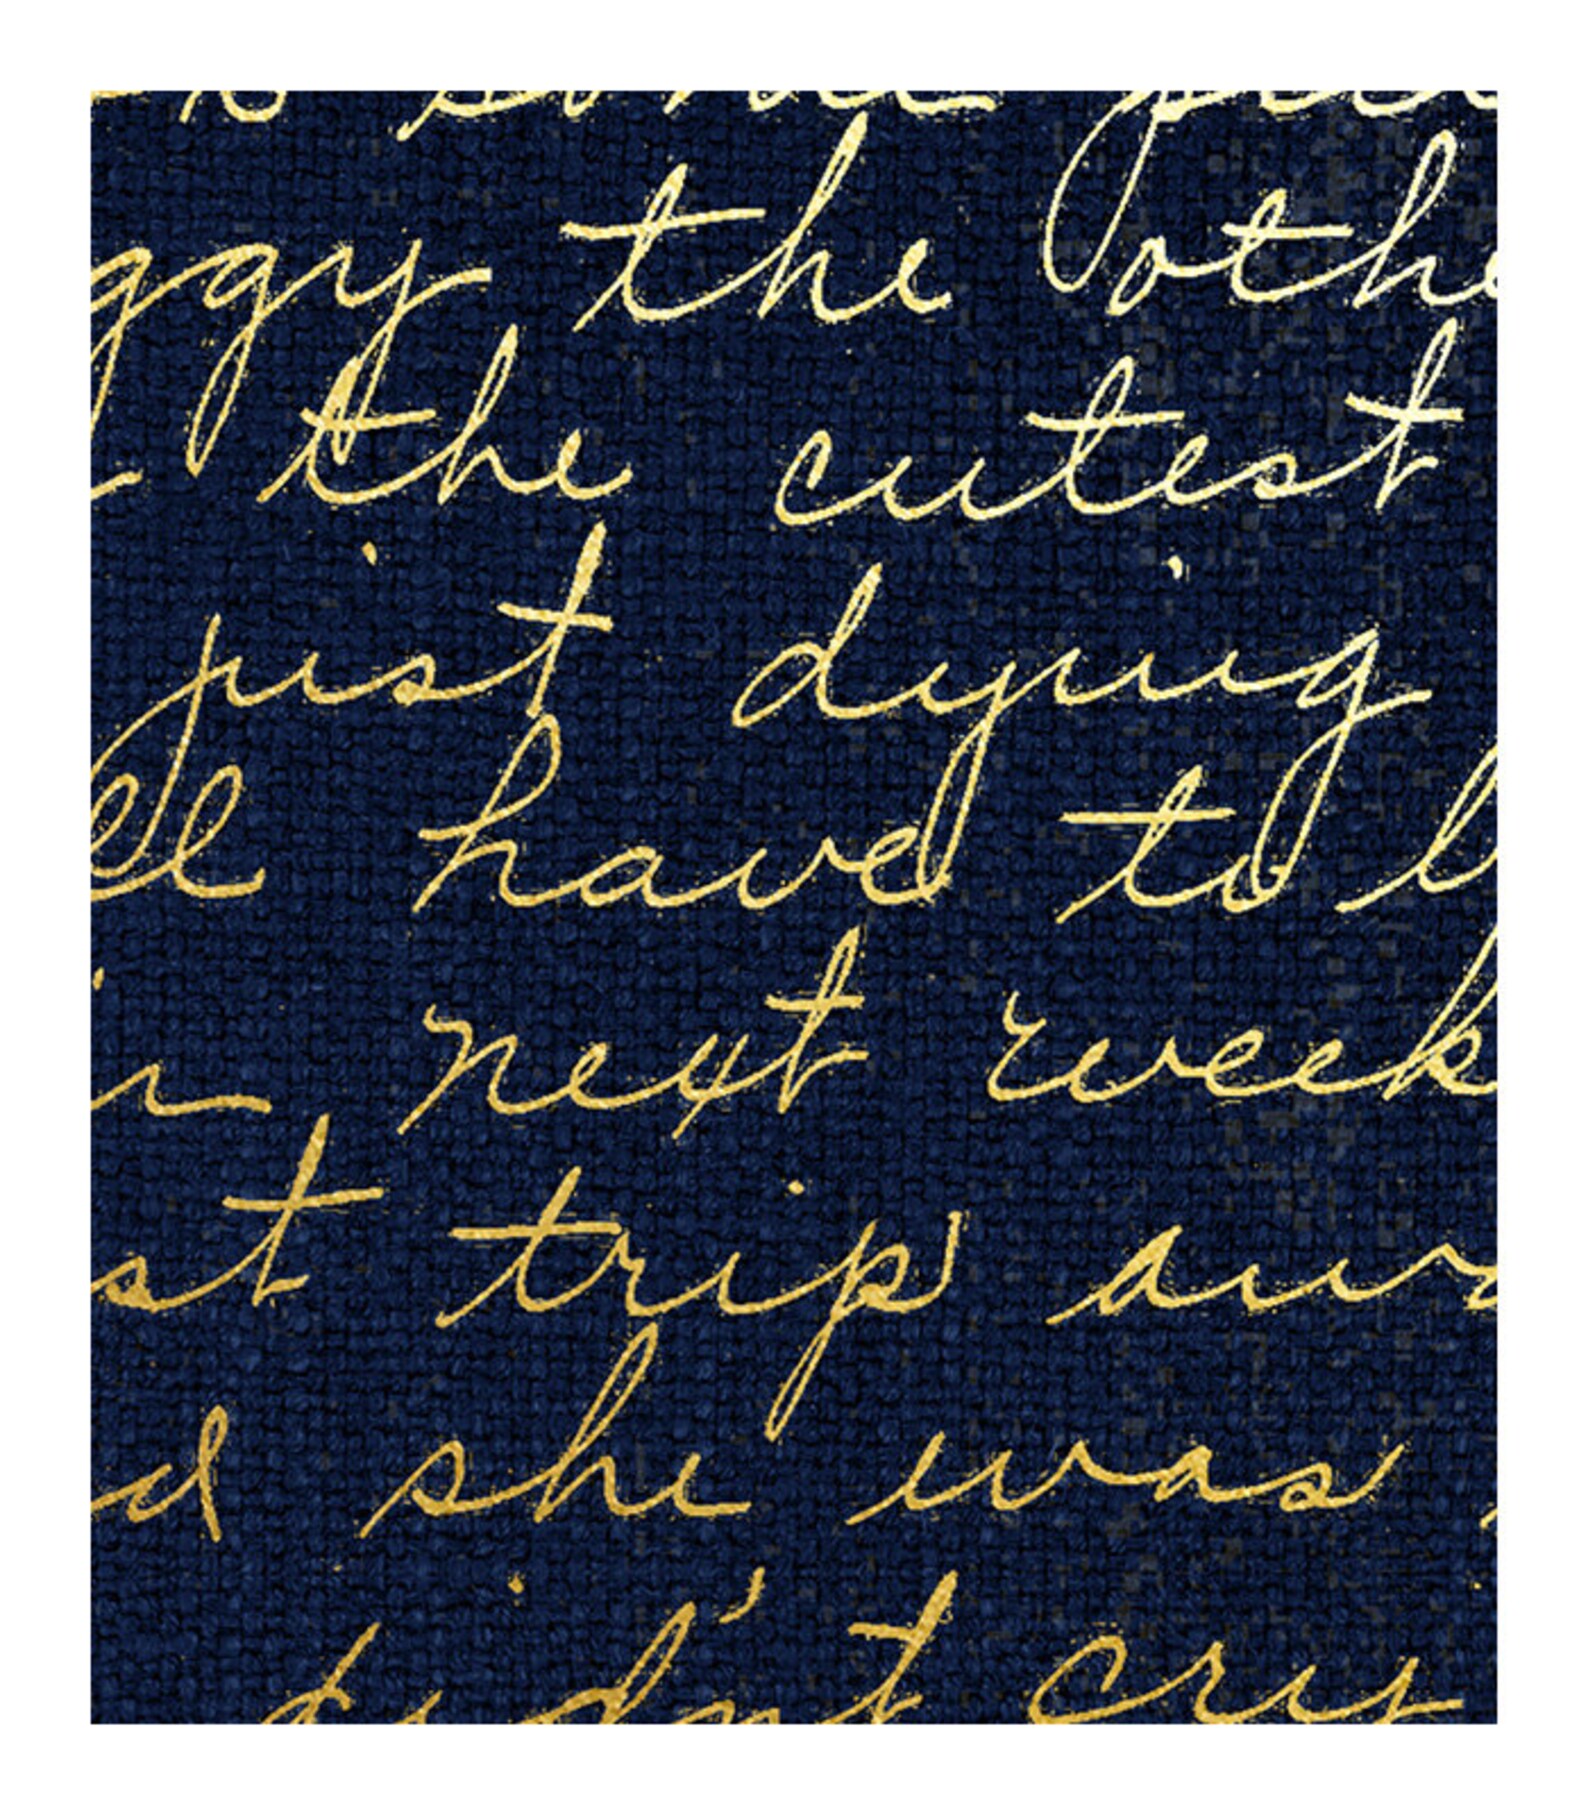 some
ggy the othe
the cutest
just dying
ell have to l
in next week
st trip awa
d she was
didn't cry